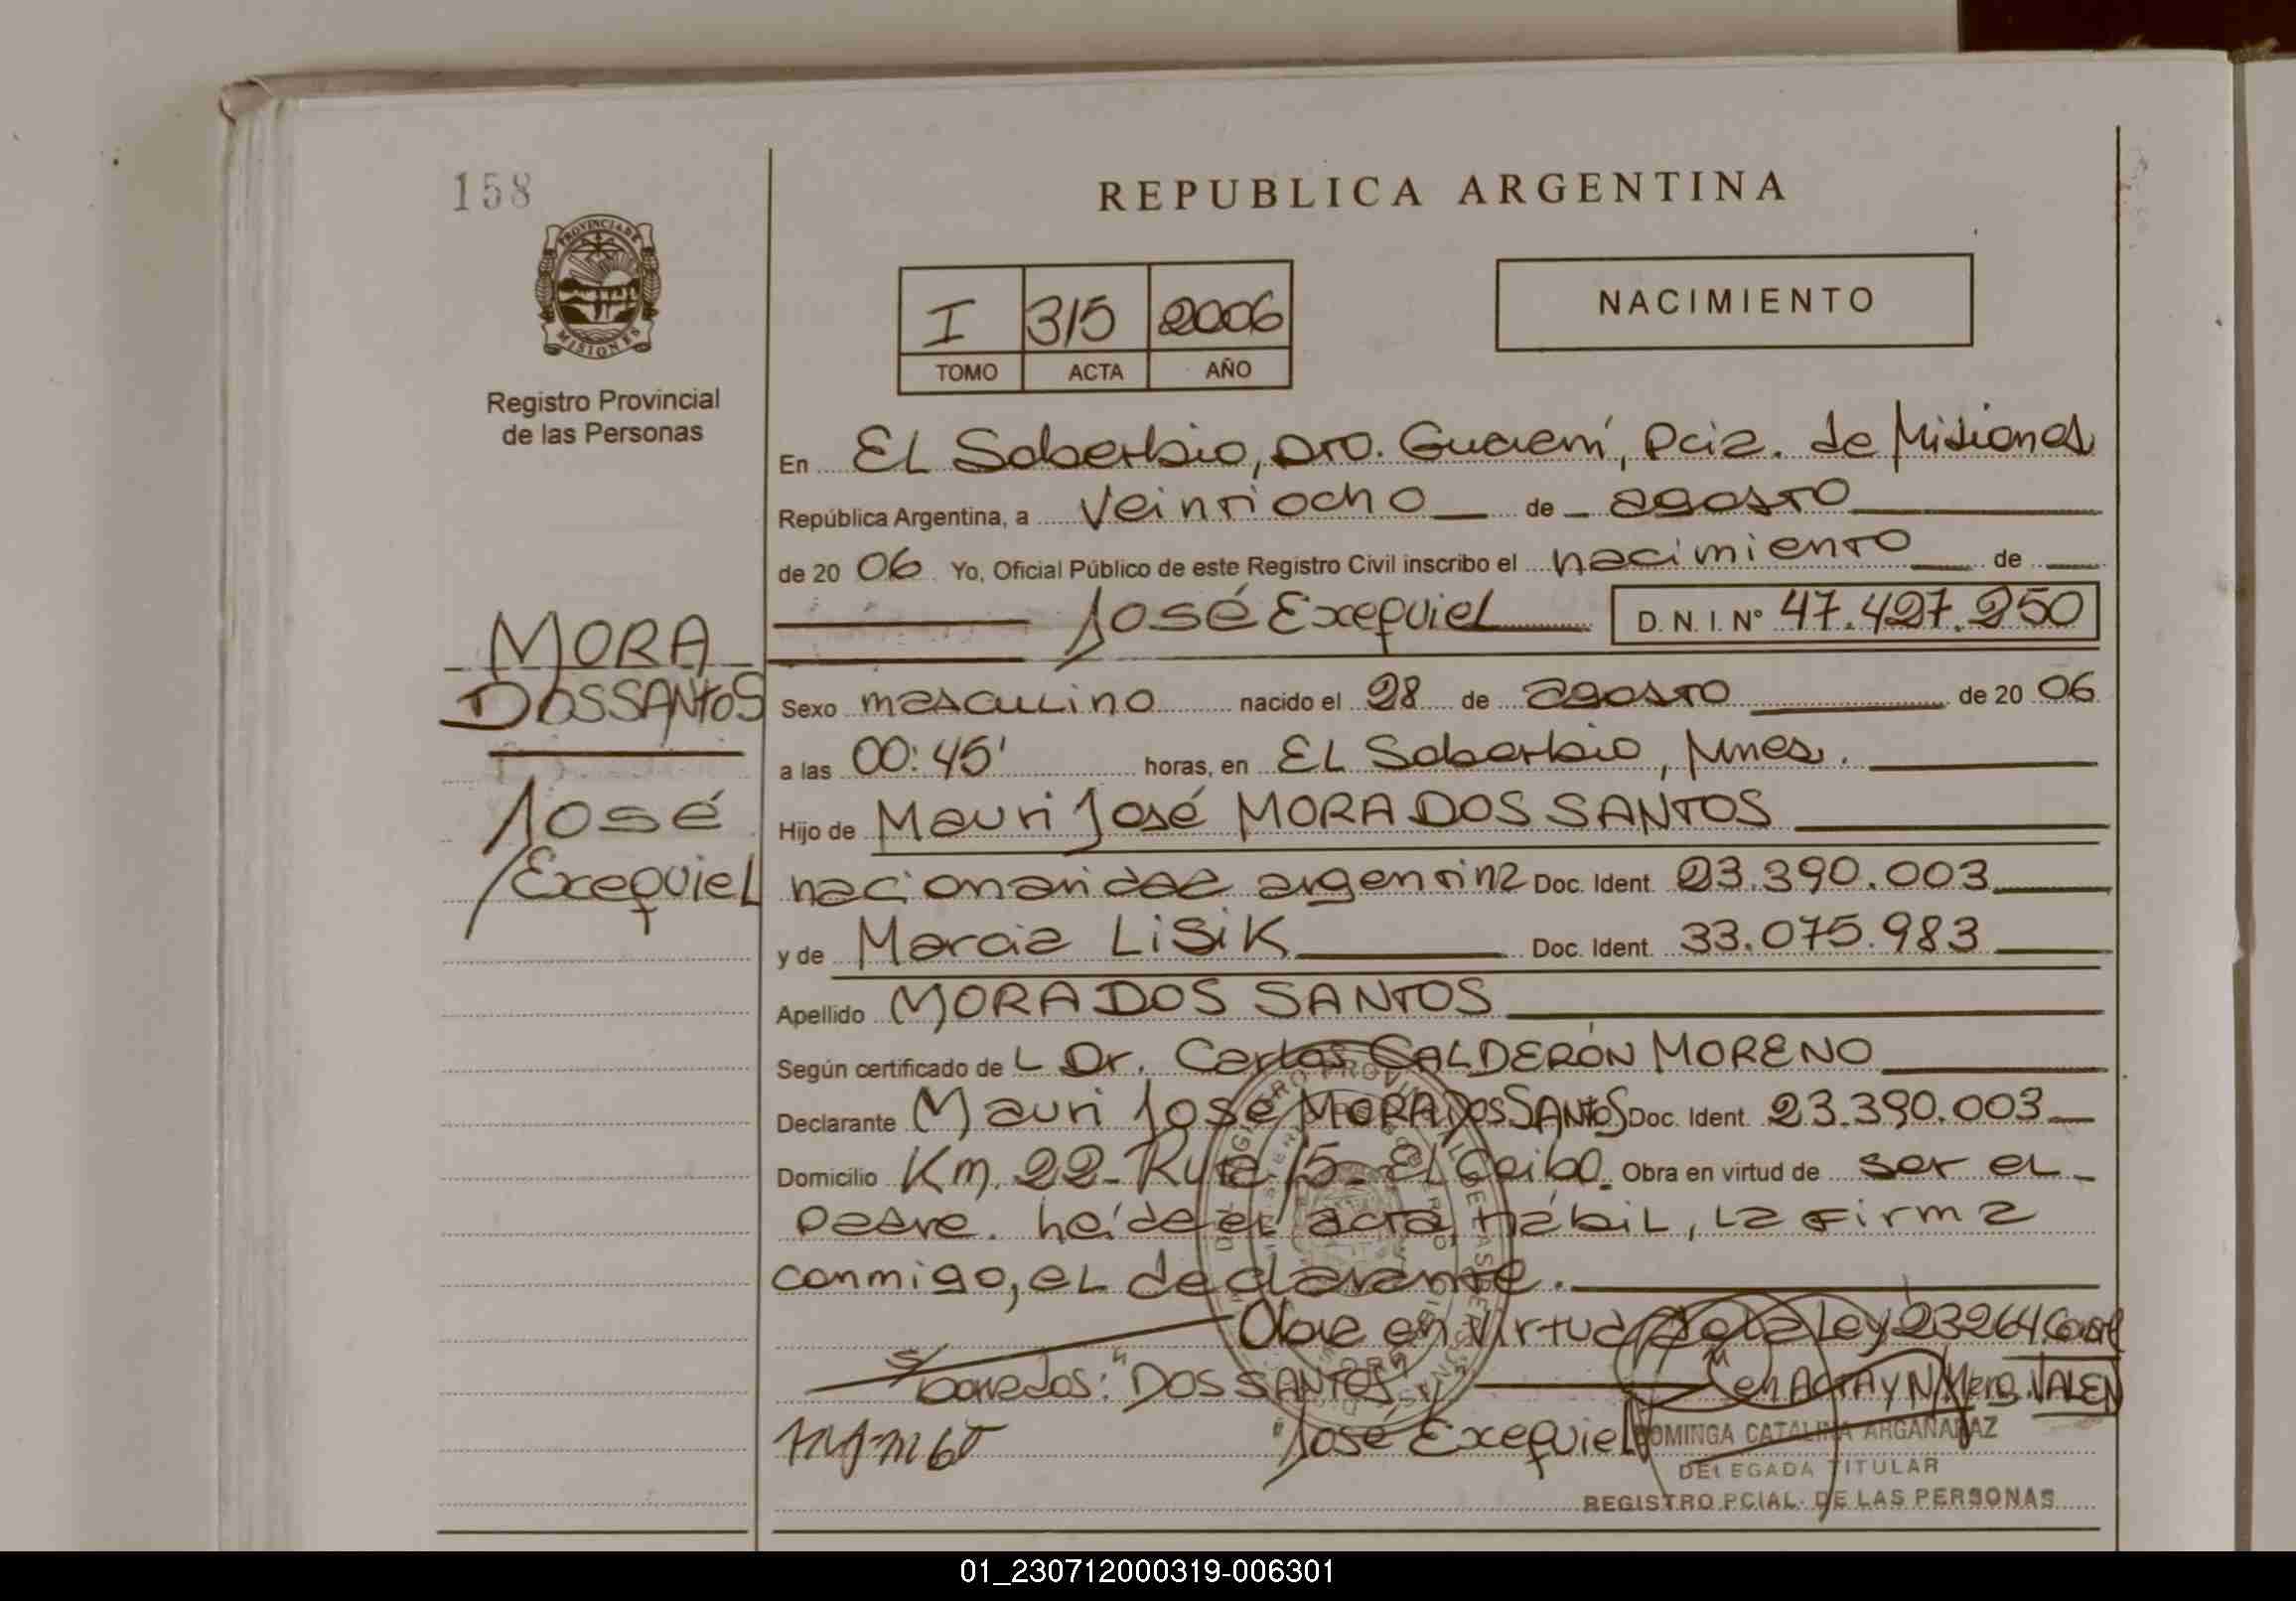 158
REPUBLICA ARGENTINA
PROVINCIA DE
MISIONES
I 315 2006
TOMO ACTA AÑO
NACIMIENTO
Registro Provincial
de las Personas
En EL Soberbio, Dto. Guaraní, Pcia. de Misiones
República Argentina, a veintiocho de agosto
de 20 06 Yo, Oficial Público de este Registro Civil inscribo el nacimiento de
José Exequiel D. N. I. Nº 47.427.250
MORA
DOS SANTOS
José
Exequiel
Sexo masculino nacido el 28 de agosto de 20 06
a las 00:45' horas, en EL Soberbio, Mnes.
Hijo de Mauri José MORA DOS SANTOS
nacionalidad argentina Doc. Ident. 23.390.003
y de Marcia LISIK Doc. Ident. 33.075.983
Apellido MORA DOS SANTOS
Según certificado de L Dr. Carlos CALDERÓN MORENO
Declarante Mauri José MORA DOS SANTOS Doc. Ident. 23.390.003
Domicilio Km. 22 - Ruta 15 - EL Ceibo. Obra en virtud de ser el
padre. Leída el acta hábil, la firma
conmigo, el declarante.
Obra en virtud de la Ley 23264
s/ borrados: "DOS SANTOS" en ACTA y N. Marg. VALEN
"José Exequiel
DOMINGA CATALINA ARGAÑARAZ
DELEGADA TITULAR
REGISTRO PCIAL. DE LAS PERSONAS
01_230712000319-006301